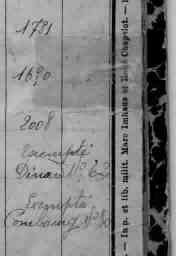 1781
1690
2008
Exempté
Dinan N° 62
Exempté
Combourg N°
— Imp. et lib. milit. Marc Imhaus et René Chapelot. —